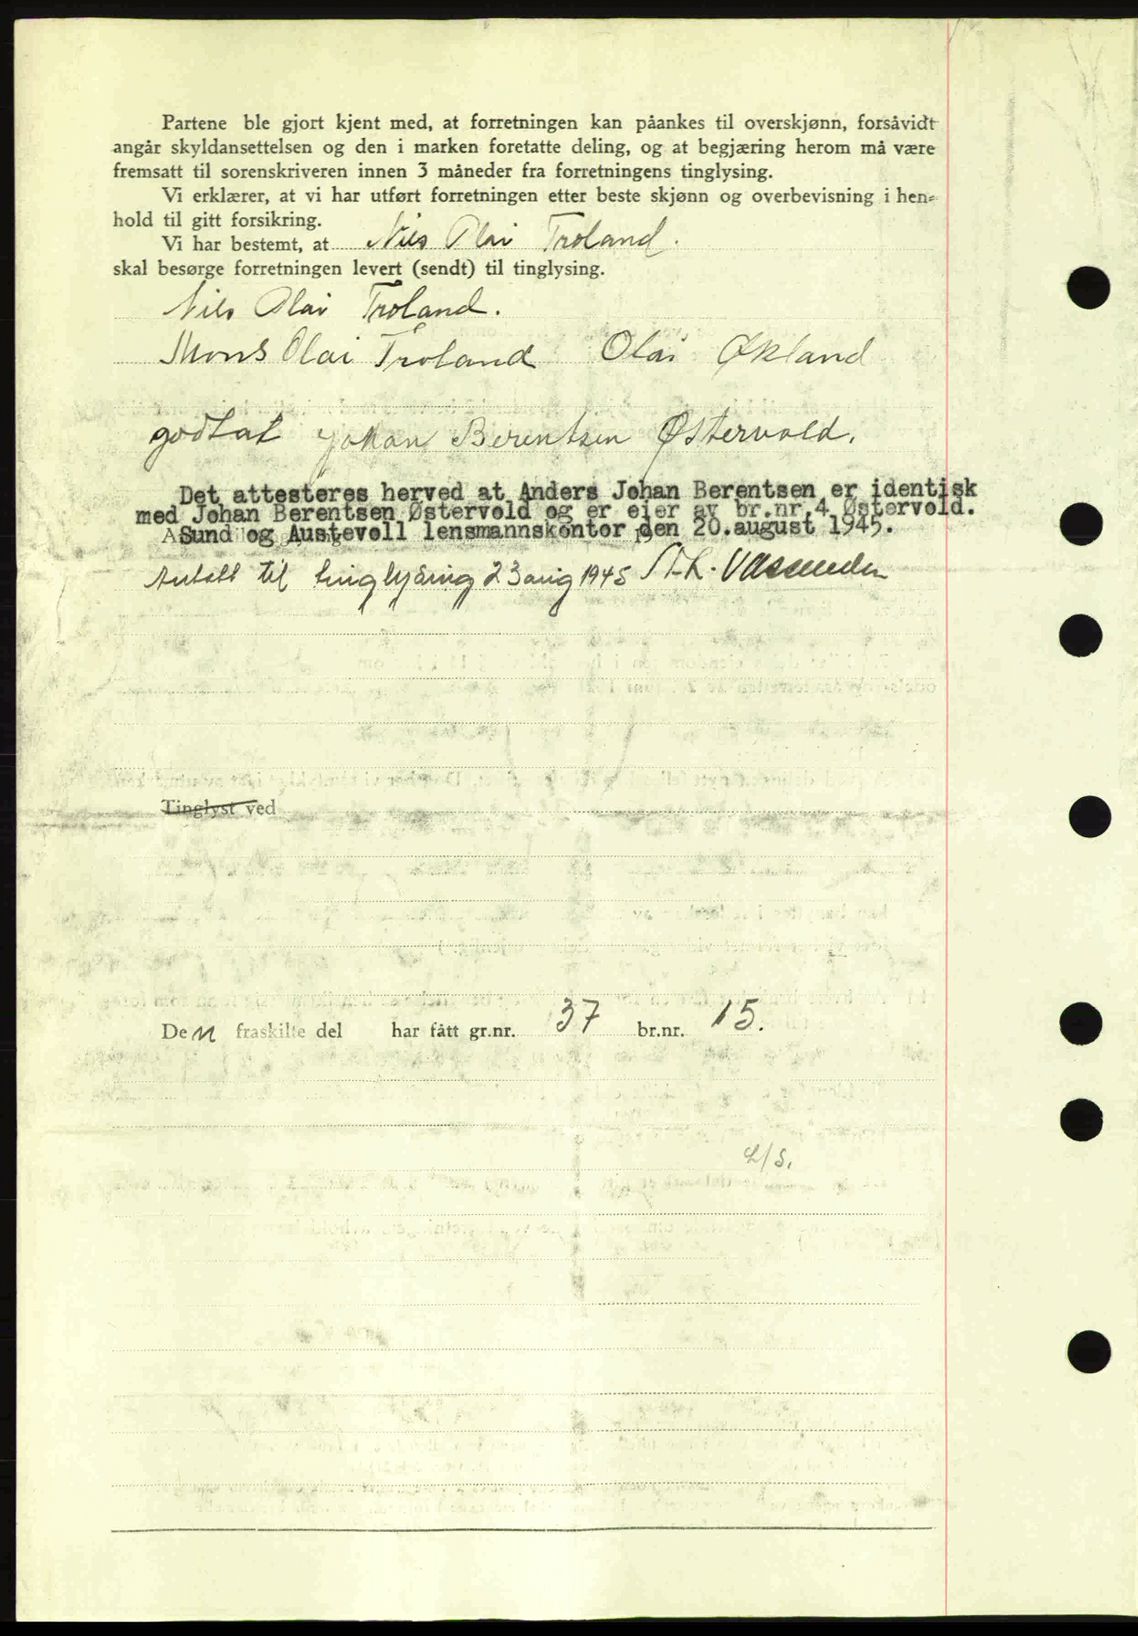 Partene ble gjort kjent med, at forretningen kan påankes til overskjønn, forsåvidt
angår skyldansettelsen og den i marken foretatte deling, og at begjæring herom må være
fremsatt til sorenskriveren innen 3 måneder fra forretningens tinglysing.
Vi erklærer, at vi har utført forretningen etter beste skjønn og overbevisning i hen=
hold til gitt forsikring.
Vi har bestemt, at Nils Olai Troland.
skal besørge forretningen levert (sendt) til tinglysing.
Nils Olai Troland.
Mons Olai Troland Olai Økland
godtat Johan Berentsen Østervold.
Det attesteres herved at Anders Johan Berentsen er identisk
med Johan Berentsen Østervold og er eier av br.nr. 4 Østervold.
Sund og Austevoll lensmannskontor den 20.august 1945.
til tinglysing 23 aug 1945
Tinglyst ved
Den fraskilte del har fått gr.nr. 37 br.nr. 15.
L/S.